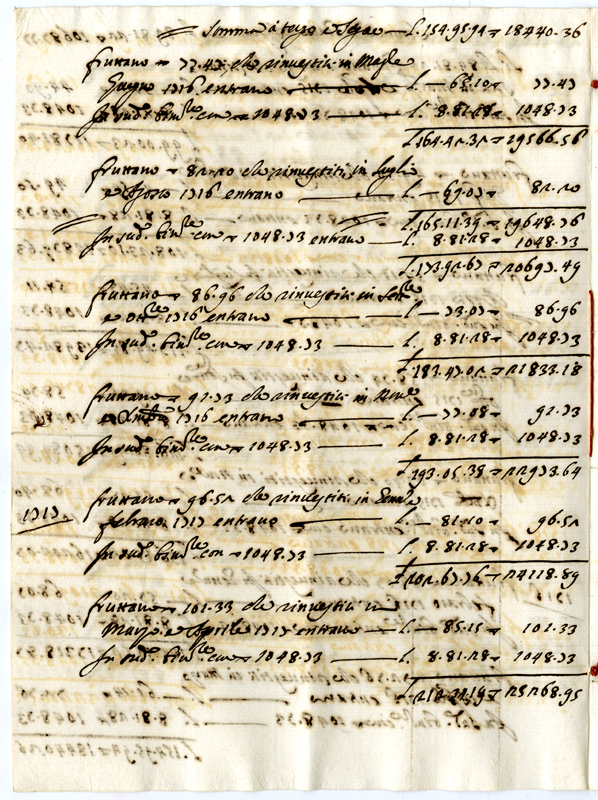 Somma à tergo e segue — L. 154.95.94 = 18440.36
fruttano = 77.47 che rinvestiti in Maggo
Giugno 1716 entrano — L. — 65.10 = 77.47
In sud.º bim.re con = 1048.73 — L. 8.81.28 = 1048.73
L. 164.42.32 = 19566.56
fruttano = 82.20 che rinvestiti in Luglio
e Agosto 1716 entrano — L. — 69.07 = 82.20
L. 165.11.39 = 19648.76
In sud.º bim.re con = 1048.73 entrano — L. 8.81.28 = 1048.73
L. 173.92.67 = 20697.49
fruttano = 86.96 che rinvestiti in Sett.re
e Ott.re 1716 entrano — L. — 73.07 = 86.96
In sud.º bim.re con = 1048.73 — L. 8.81.28 = 1048.73
L. 183.47.02 = 21833.18
fruttano = 91.73 che rinvestiti in Nov.e
e Xmbre 1716 entrano — L. — 77.08 = 91.73
In sud.º bim.re con = 1048.73 — L. 8.81.28 = 1048.73
L. 193.05.38 = 22973.64
fruttano = 96.52 che rinvestiti in Genn.o
1717. febraro 1717 entrano — L. — 81.10 = 96.52
In sud.º bim.re con = 1048.73 — L. 8.81.28 = 1048.73
L. 202.67.76 = 24118.89
fruttano = 101.33 che rinvestiti in
Marzo e Aprile 1717 entrano — L. — 85.15 = 101.33
In sud.º bim.re con = 1048.73 — L. 8.81.28 = 1048.73
L. 212.34.19 = 25268.95